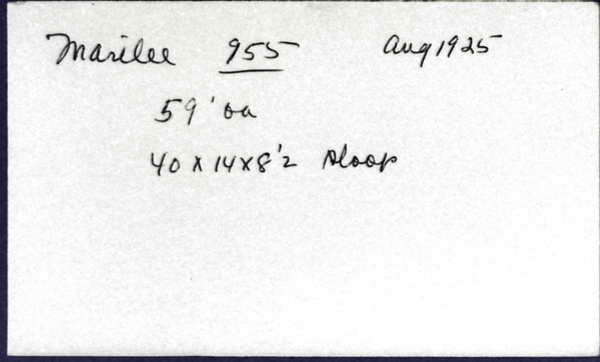 Marilee 955 Aug 1925
59' oa
40 x 14 x 8'2 sloop